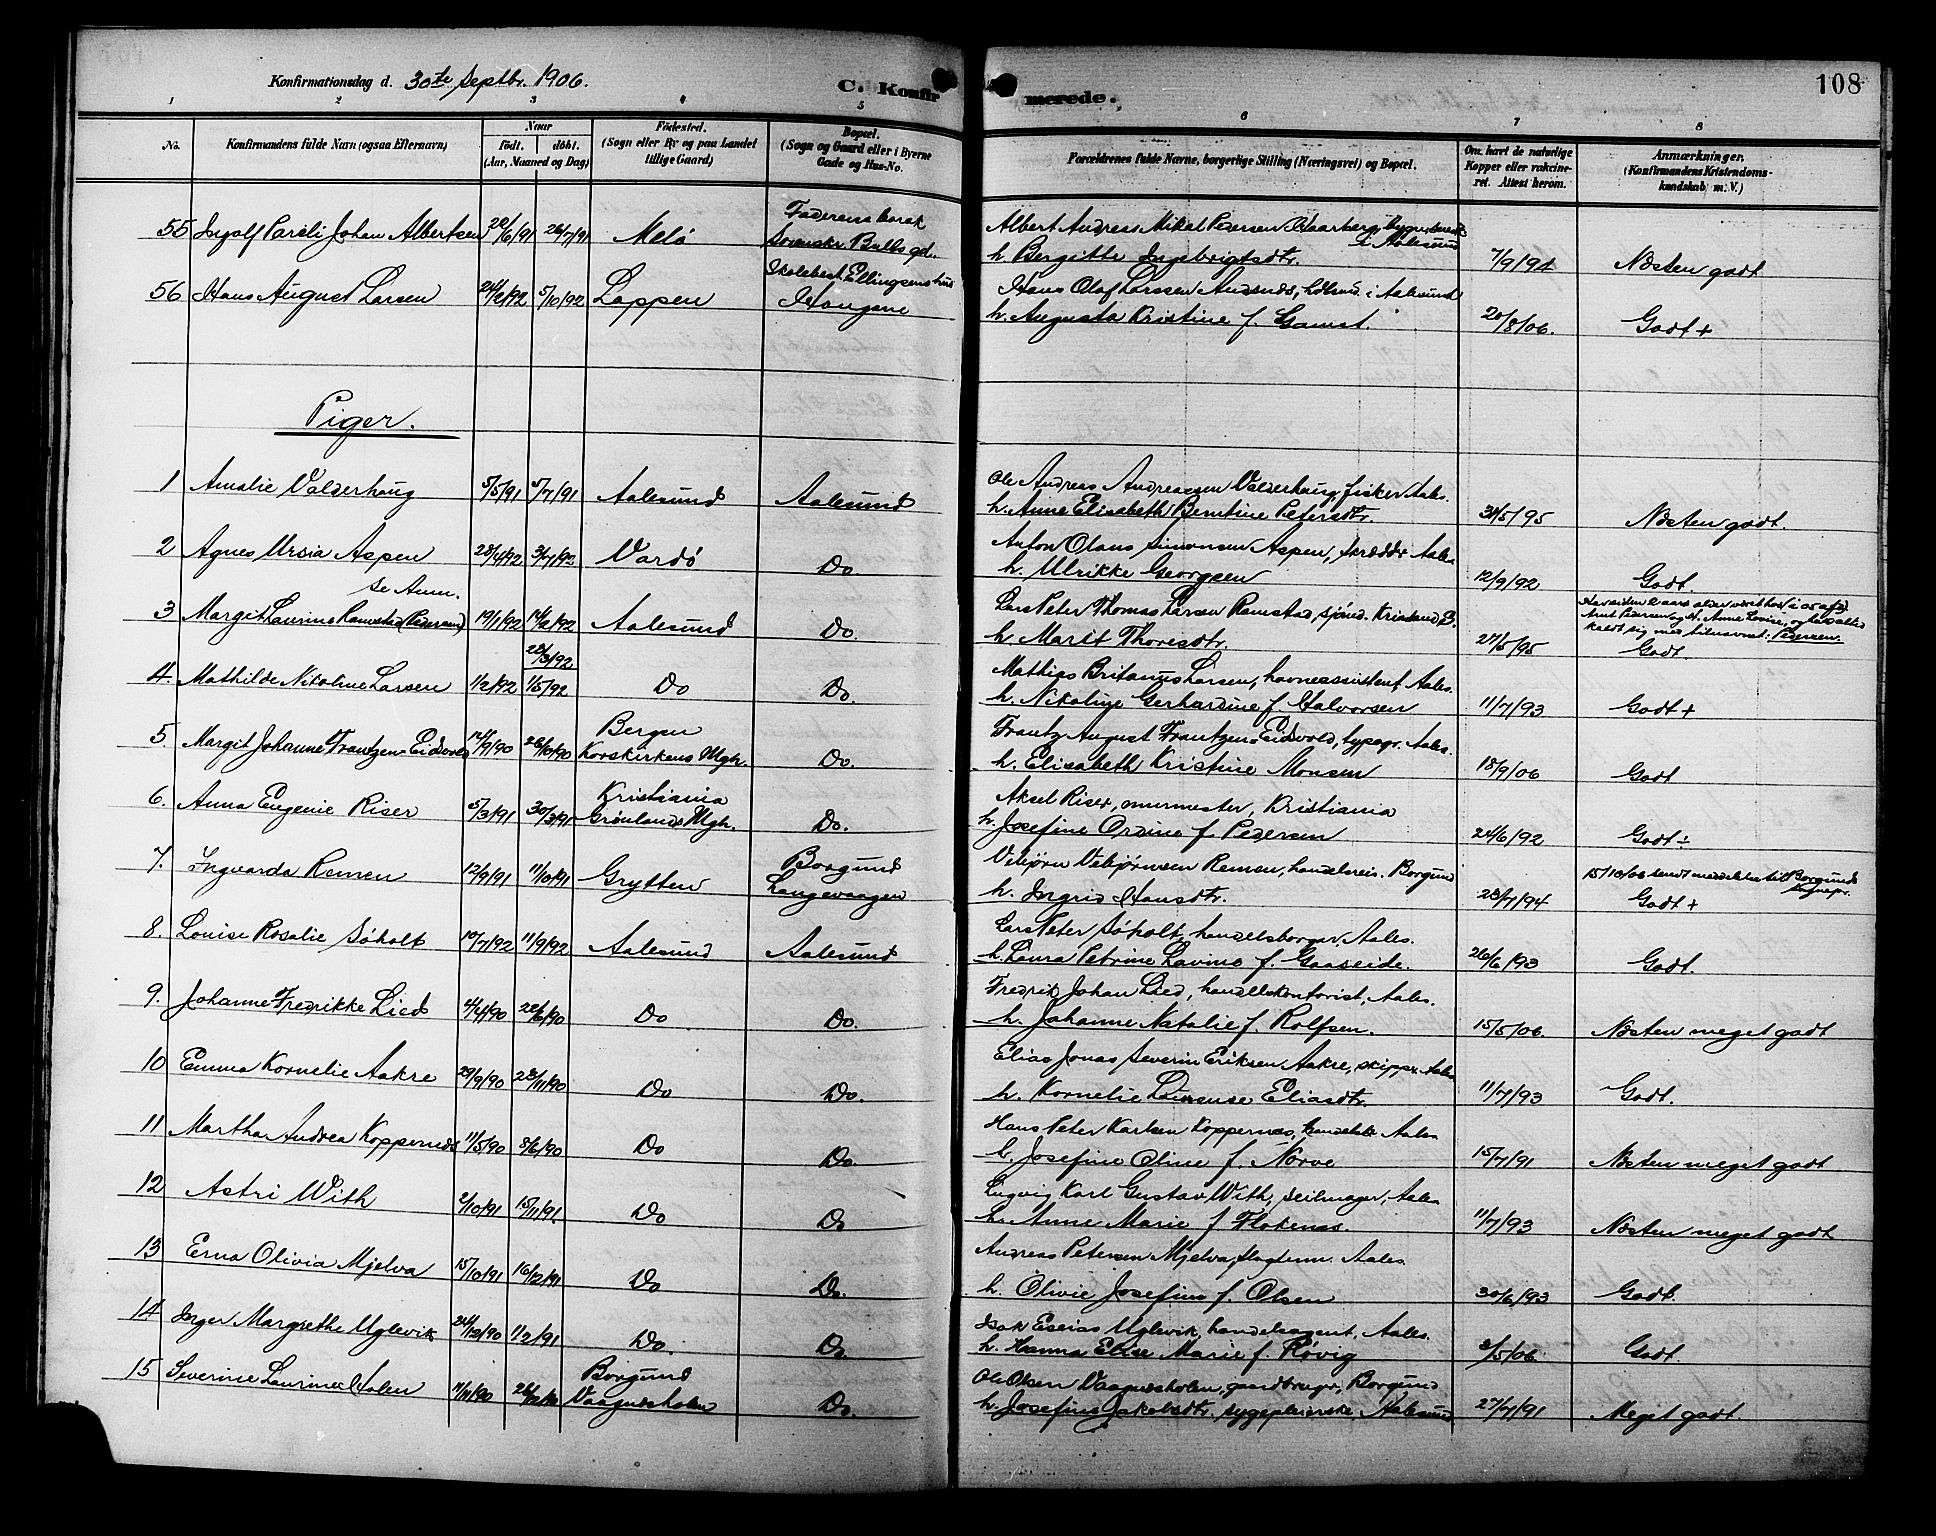 108
Konfirmationsdag d. 30te Septbr. 1906.
C. Konfirmerede.
1 2 3 4 5 6 7 8
No.
Konfirmandens fulde Navn (ogsaa Efternavn)
Naar
født. døbt.
(Aar, Maaned og Dag)
Fødested.
(Sogn eller By og paa Landet
tillige Gaard)
Bopæl.
(Sogn og Gaard eller i Byerne
Gade og Hus-No.
Forældrenes fulde Navne, borgerlige Stilling (Næringsvei) og Bopæl.
Om havt de naturlige
Kopper eller vakcine-
ret. Attest herom.
Anmærkninger.
(Konfirmandens Kristendoms-
kundskab m. V.)
55 Ingolf Johan Albertsen 26/7/91 Melø
Albert Andreas Mikal Pedersen i Aalesund
h. Bergitte Ingebrigtsdtr. 7/9/94 Næsten godt
56 Hans August Larsen 24/2/92 5/10/92 Loppen
Skolebest. Ellingsens hus
Haugene
Hans Olaf Larssen i Aalesund
h. Augusta Kristine f. Gamst. 20/8/06. Godt +
Piger.
1 Amalie Valderhaug 5/5/91 5/7/91 Aalesund Aalesund
Ole Andreas Andreassen Valderhaug, fisker Aales.
h. Anne Elisabeth Berntine Petersdtr. 31/5/95 Næsten godt.
2 Agnes Ursia Aspen 28/4/92 3/7/92 Vardö Do.
Anton Olaus Simonsen Aspen, skrædder Aales
h. Ulrikke Georgsen 12/9/92 Godt.
se Anm.
3 Margit Laurine Ramstad (Pedersen) 19/1/92 14/2/92 Aalesund Do.
Lars Peter Thomas Larsen Ramstad, sjömd. Kristiansund, B.
h. Marit Thoresdtr. 27/5/95 Godt.
Arnt Pedersen og h. Anne Lovise, og
kaldt sig med Pedersen.
28/3/92
4. Mathilde Nikoline Larsen 1/2/92 1/5/92 Do Do.
Mathias Britanus Larsen, havneassistent, Aales.
h. Nikoline Gerhardine f. Halvorsen 11/7/93 Godt +
5. Margit Johanne Frantzen-Eidsvold 12/9/90 26/10/90
Bergen
Korskirkens Mgh. Do.
Frantz August Frantzen-Eidsvold, typogr. Aales.
h. Elisabeth Kristine Monsen 18/9/06 Godt
6. Anna Eugenie Riser 5/3/91 30/3/91
Kristiania
Grønlands Mgh. Do.
Aksel Riser, murmester, Kristiania
h. Josefine Ordine f. Pedersen 24/6/92 Godt ÷
7. Ingvarda Remen 12/9/91 11/10/91 Grytten
Borgund
Langevaagen
Vebjørn Vebjørnsen Remen, handelsreis. Borgund
h. Ingrid Hansdtr. 28/7/94 Godt +
15/10/06 sendt meddelelse til Borgunds Sognepr.
8. Louise Rosalie Søholt 10/7/92 11/9/92 Aalesund Aalesund
Lars Peter Søholt, handelsborger, Aales.
h. Laura Petrine Lavine f. Gaaseide. 26/6/93 Godt.
9. Johanne Fredrikke Lied 4/4/90 22/6/90 Do Do.
Fredrik Johan Lied, handelskontorist, Aales.
h. Johanne Natalie f. Rolfsen. 15/5/06. Næsten meget godt
10 Emma Kornelie Aakre 29/9/90 23/11/90 Do Do.
Elias Jonas Severin Eriksen Aakre, skippr. Aales
h. Kornelie Laurense Eliasdtr. 11/7/93 Godt.
11 Martha Andrea Koppernæs 11/5/90 8/6/90 Do Do.
Hans Peter Karlsen Koppernæs, Aales
h. Josefine Oline f. Nörve 15/7/91 Næsten meget godt
12 Astri With 2/10/91 15/11/91. Do Do
Ludvig Karl Gustav With, seilmager, Aales
h. Anne Marie f. Flokenæs. 11/7/93 Næsten meget godt
13 Erna Olivia Mjelva 15/10/91 16/12/91 Do Do.
Andreas Petersen Mjelva, Aales.
h. Olivie Josefine f. Olsen 30/6/93 Godt.
14 Inger Margrethe Uglevik 24/12/90 1/2/91 Do. Do
Isak Esaias Uglevik, handelsagent, Aales.
h. Hanna Elise Marie f. Røvig 3/5/06. Godt.
15 Severine Laurine Holen 11/11/90
Borgund
Vaagnesholen Do.
Ole Olsen Vaagnesholen, gaardbruger, Borgund
h. Josefine Jakobsdtr. sygepleierske, Aalesund 27/7/91 Meget godt.